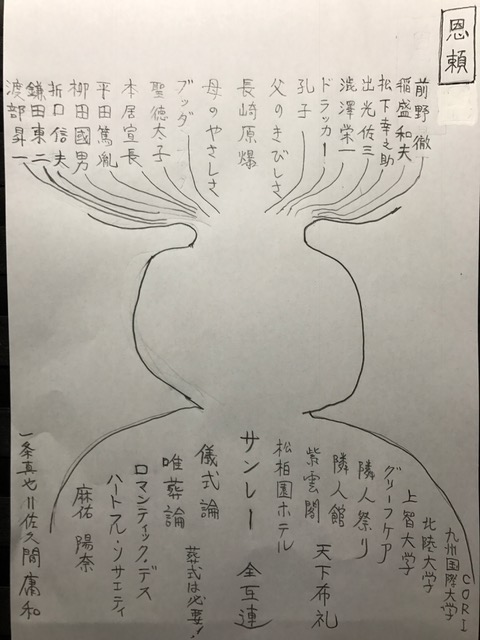 恩頼
前野徹
稲盛和夫
松下幸之助
出光佐三
澁澤栄一
ドラッカー
孔子
父のきびしさ
長崎原爆
母のやさしさ
ブッダ
聖徳太子
本居宣長
平田篤胤
柳田國男
折口信夫
鎌田東二
渡部昇一
CORI
九州国際大学
北陸大学
上智大学
グリーフケア
隣人祭り
隣人館
天下布礼
紫雲閣
松柏園ホテル
サンレー 全互連
儀式論
葬式は必要!
唯葬論
ロマンティック・デス
ハートフル・ソサエティ
麻祐 陽奈
一条真也=佐久間庸和